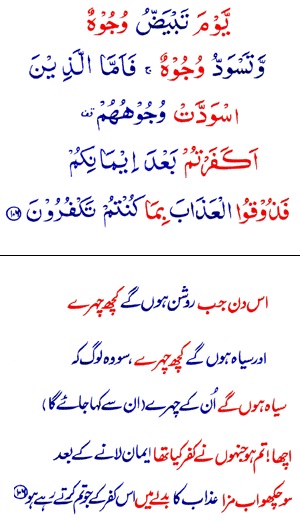 يَّوْمَ تَبْيَضُّ وُجُوْهٌ
وَّتَسْوَدُّ وُجُوْهٌ ۚ فَاَمَّا الَّذِيْنَ
اسْوَدَّتْ وُجُوْهُهُمْ ۟قف
اَكَفَرْتُمْ بَعْدَ اِيْمَانِكُمْ
فَذُوْقُوا الْعَذَابَ بِمَا كُنْتُمْ تَكْفُرُوْنَ ﴿۱۰۶﴾
اس دن جب روشن ہوں گے کچھ چہرے
اور سیاہ ہوں گے کچھ چہرے ، سو وہ لوگ کہ
سیاہ ہوں گے اُن کے چہرے (ان سے کہا جائے گا)
اچھا! تم ہو جنہوں نے کفر کیا تھا ایمان لانے کے بعد
سو چکھو اب مزا عذاب کا بدلے میں اس کفر کے جو تم کرتے رہے ہو ﴿۱۰۶﴾